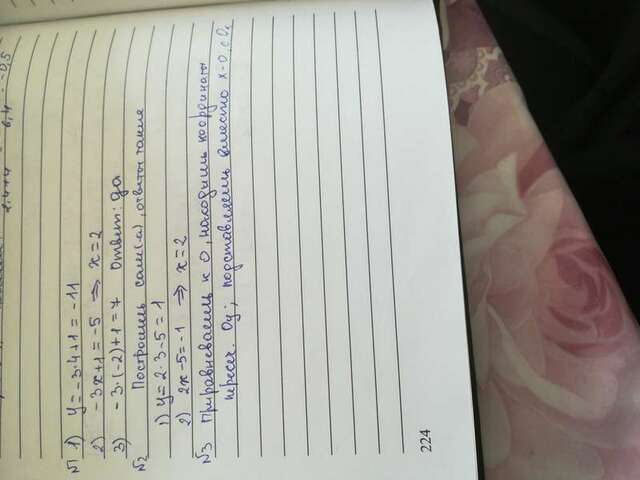 2,4+4 6,4 -0,5
№1 1) y = -3·4+1 = -11
2) -3x+1 = -5 => x = 2
3) -3·(-2)+1 = 7 Ответ: да
№2 Построишь сам(а), ответы такие
1) y = 2·3-5 = 1
2) 2x-5 = -1 => x = 2
№3 Приравниваешь к 0, находишь координаты
перес. Oy; подставляешь вместо x-0, с
224